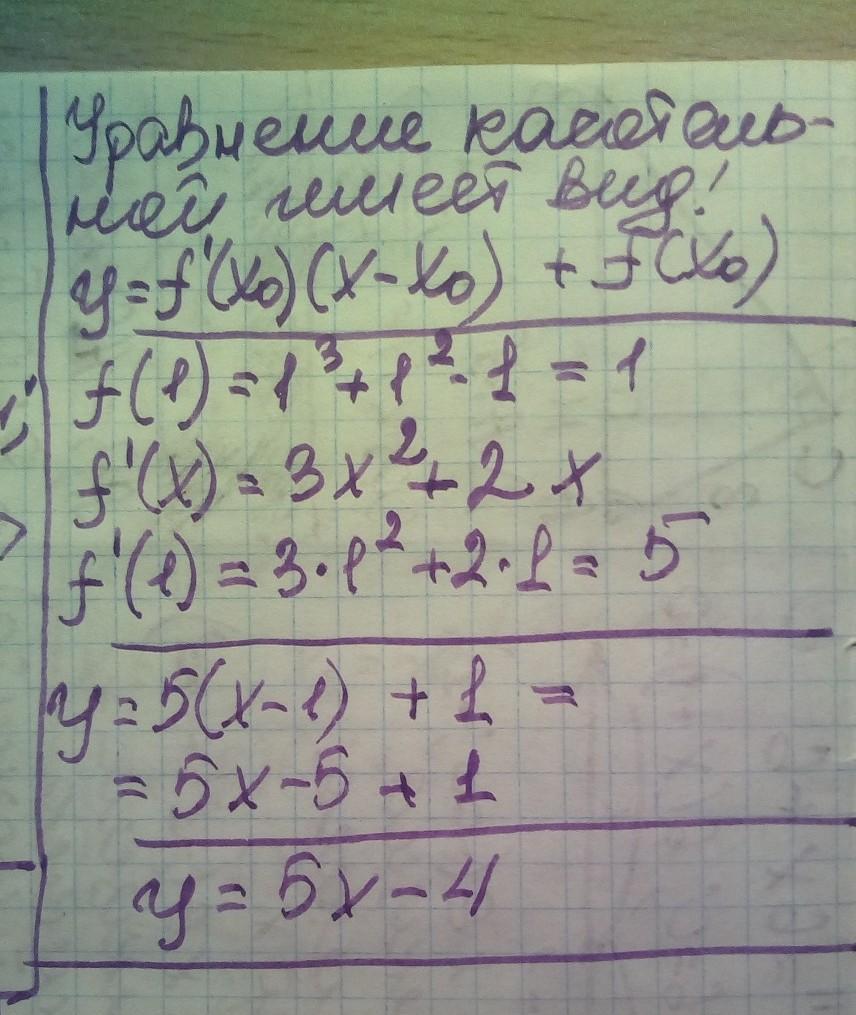 Уравнение касатель-
ной имеет вид!
y=f'(x₀)(x-x₀) + f(x₀)
f(1)=1³+1²-1=1
f'(x)=3x²+2x
f'(1)=3·1²+2·1=5
y=5(x-1)+1=
=5x-5+1
y=5x-4